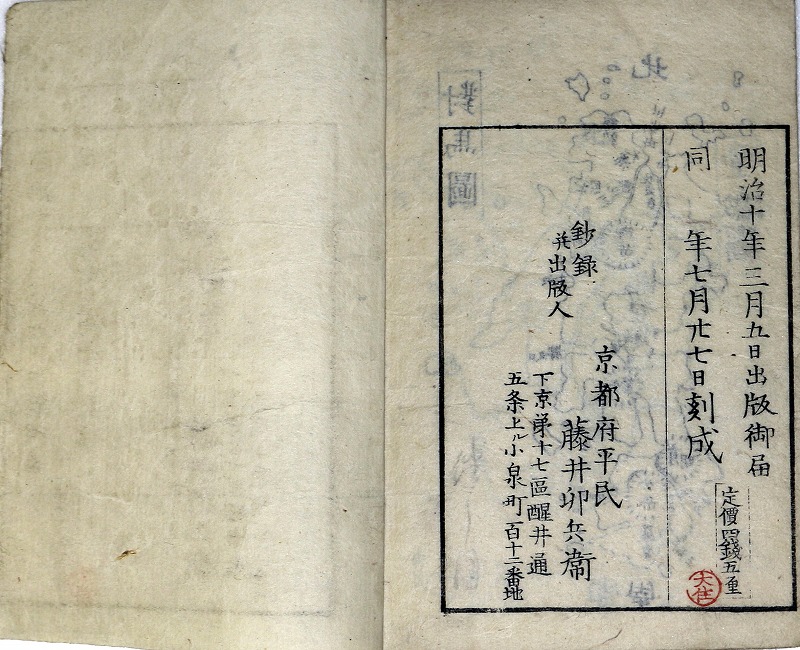 明治十年三月九日出版御届
同　年七月廿七日刻成
定價四錢五厘
大住
鈔録
并出版人
京都府平民
藤井卯兵衞
下京第十七區醒井通
五条上ル小泉町百十二番地
對馬圖
北